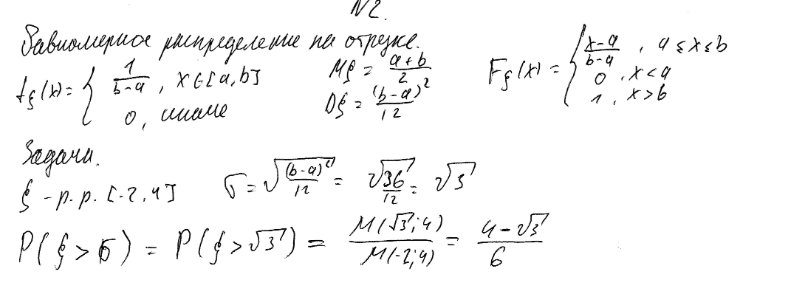 N2.
Равномерное распределение на отрезке.
f_ξ(x) = { 1/(b-a), x∈[a,b]; 0, иначе
Mξ = (a+b)/2
Dξ = (b-a)²/12
F_ξ(x) = { (x-a)/(b-a), a≤x≤b; 0, x<a; 1, x>b
Задача.
ξ - р.р. [-2,4] σ = √((b-a)²/12) = √(36/12) = √3
P(ξ>σ) = P(ξ>√3) = M(√3;4)/M(-2;4) = (4-√3)/6